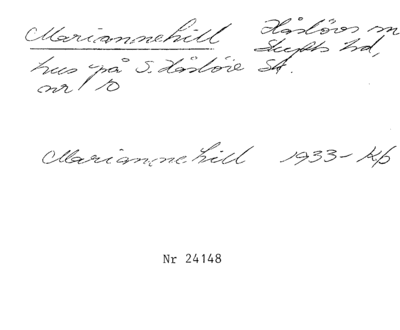 Mariannehill Håslövs sn
Skytts hd,
hus på S. Håslöv Sk.
nr 10
Mariannehill 1933- Kp
Nr 24148